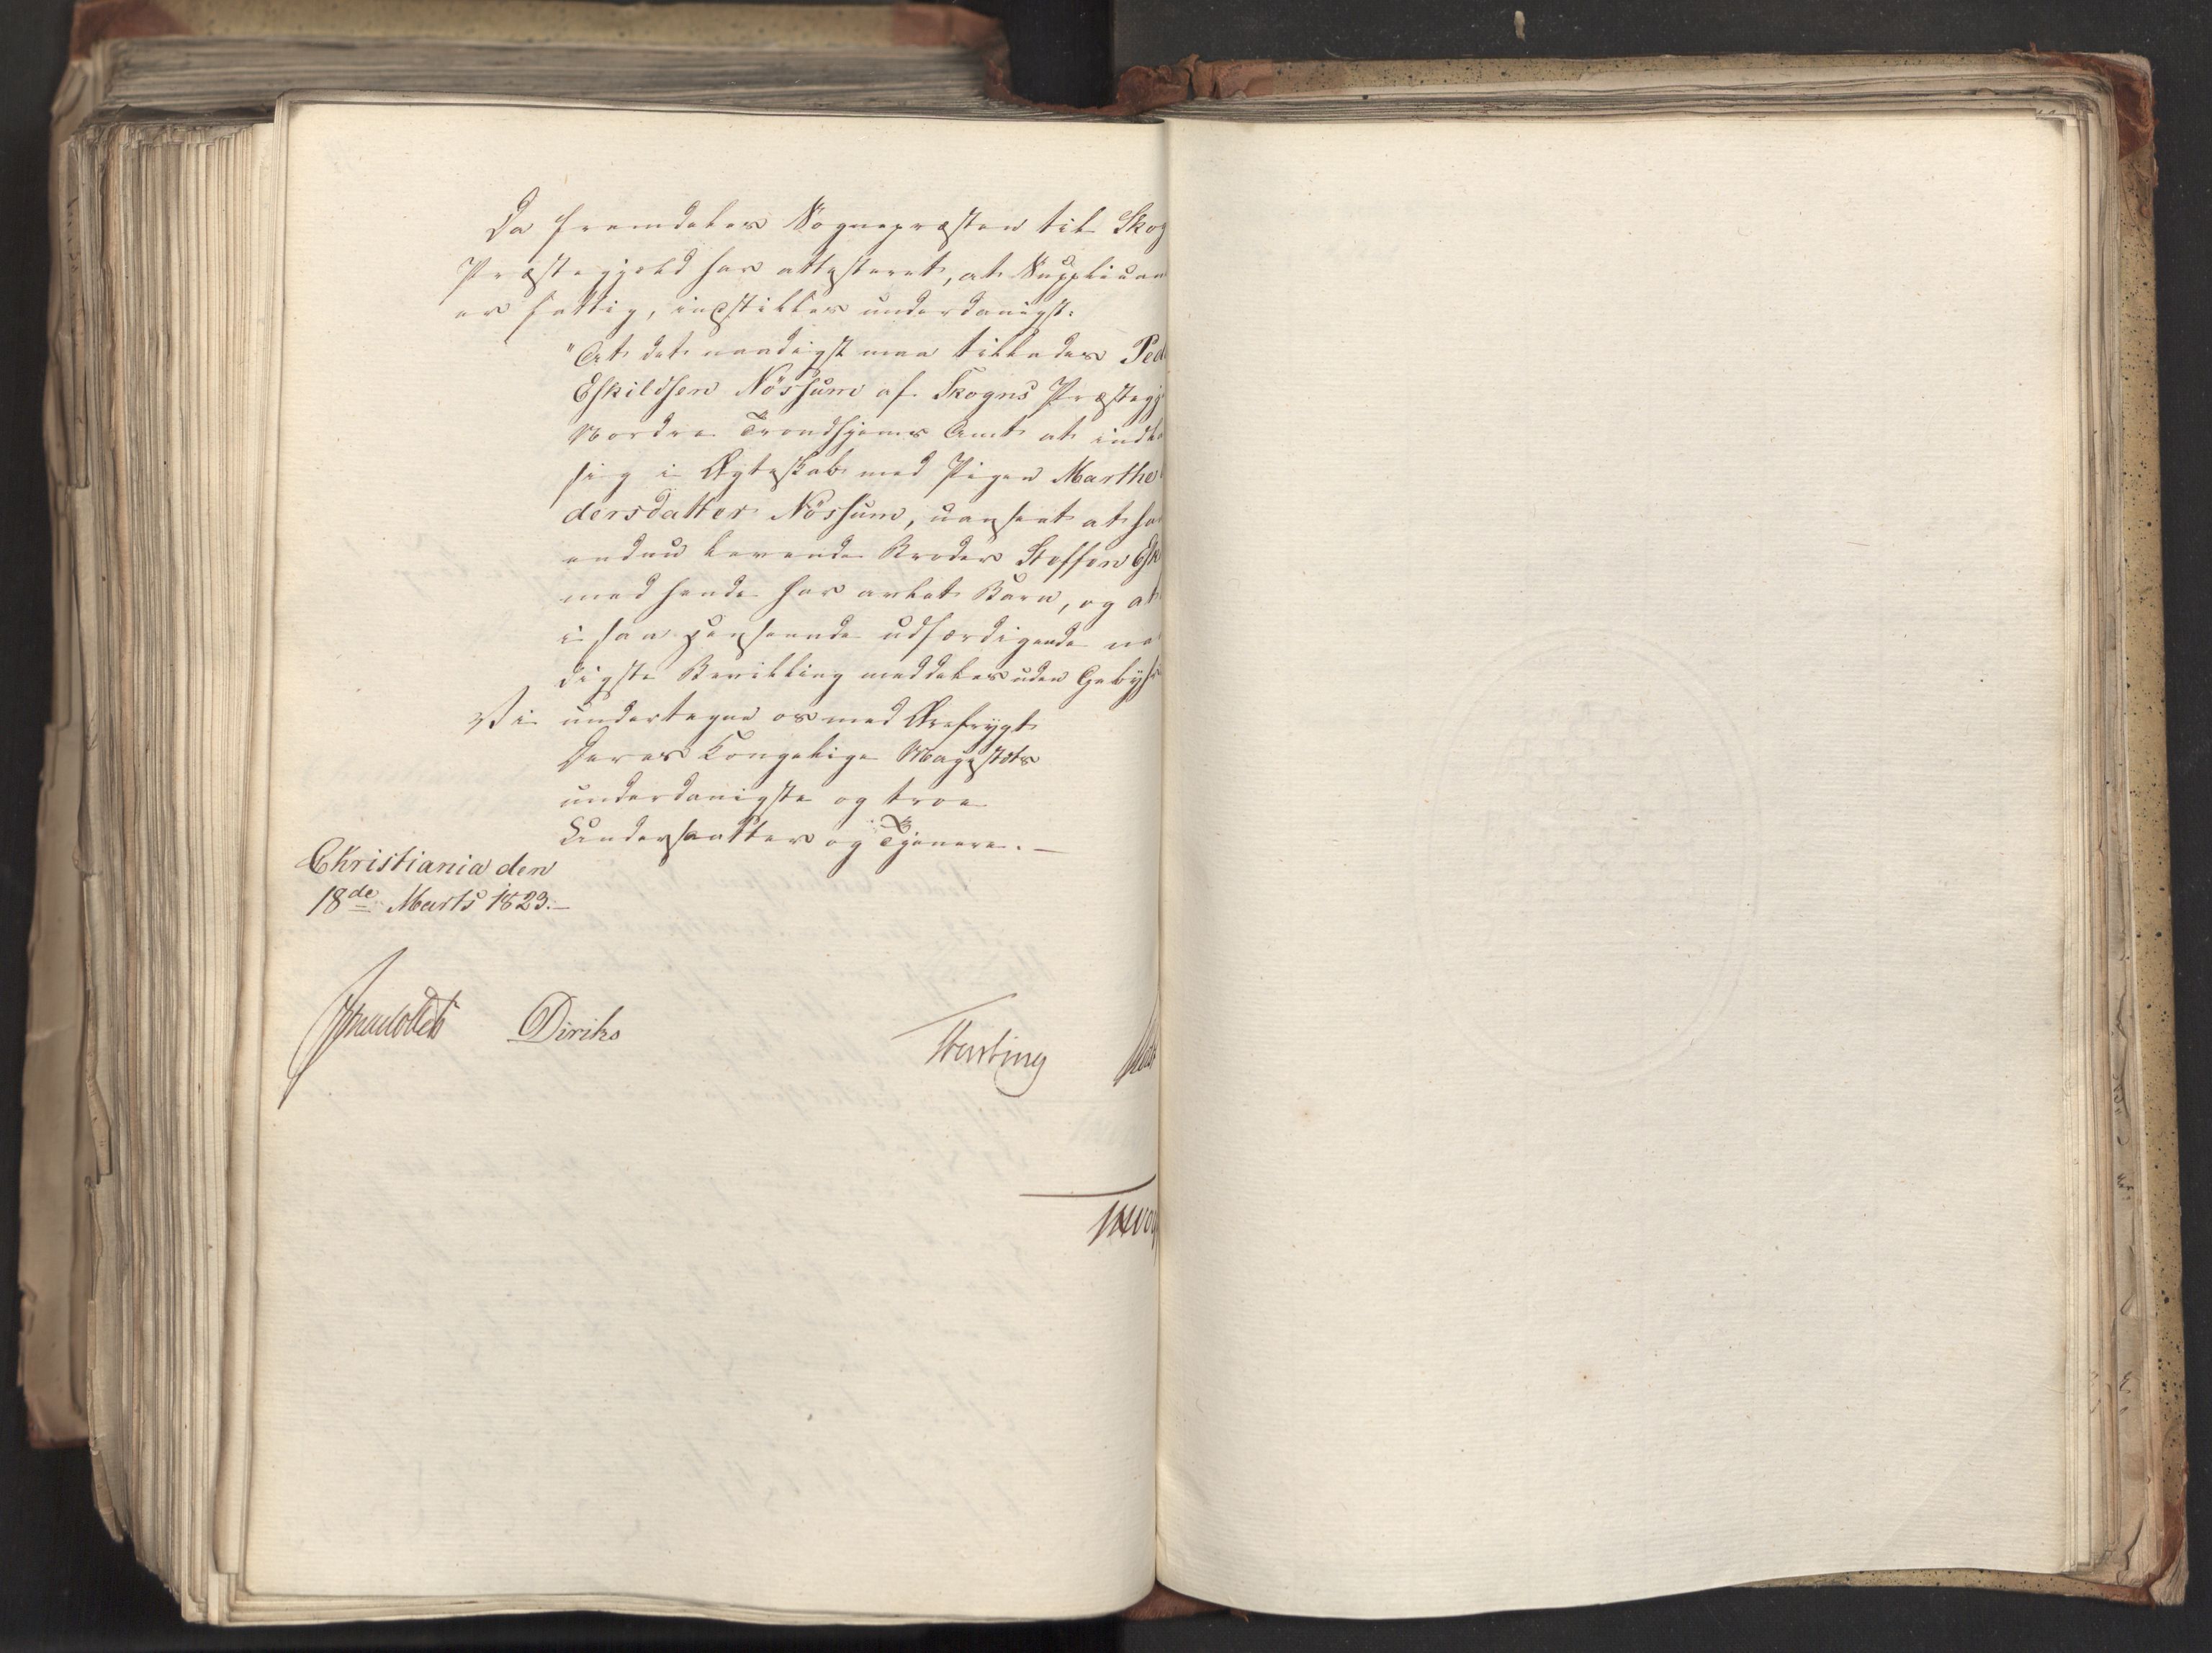 Da fremdeles Sognepræsten til Skog
Præstegjæld har attesteret, at Supplican
er fattig, indstilles underdanigst:
"At det naadigst maa tillades Ped
Eskildsen Nössum af Skogns Præstegj
Nordre Trondhjems Amt at indla
sig i Ægteskab med Pigen Marthe
dersdatter Nössum, uanseet at ha
endnu levende Broder Steffen Esk
med hende har avlet Barn, og at
i saa Henseende udfærdigende na
digste Bevilling meddeles uden Gebyhr
Vi undertegne os med Ærefrygt
Deres Kongelige Majestæts
underdanigste og troe
Undersaatter og Tjenere. —
Christiania den
18de Marts 1823. —
Diriks